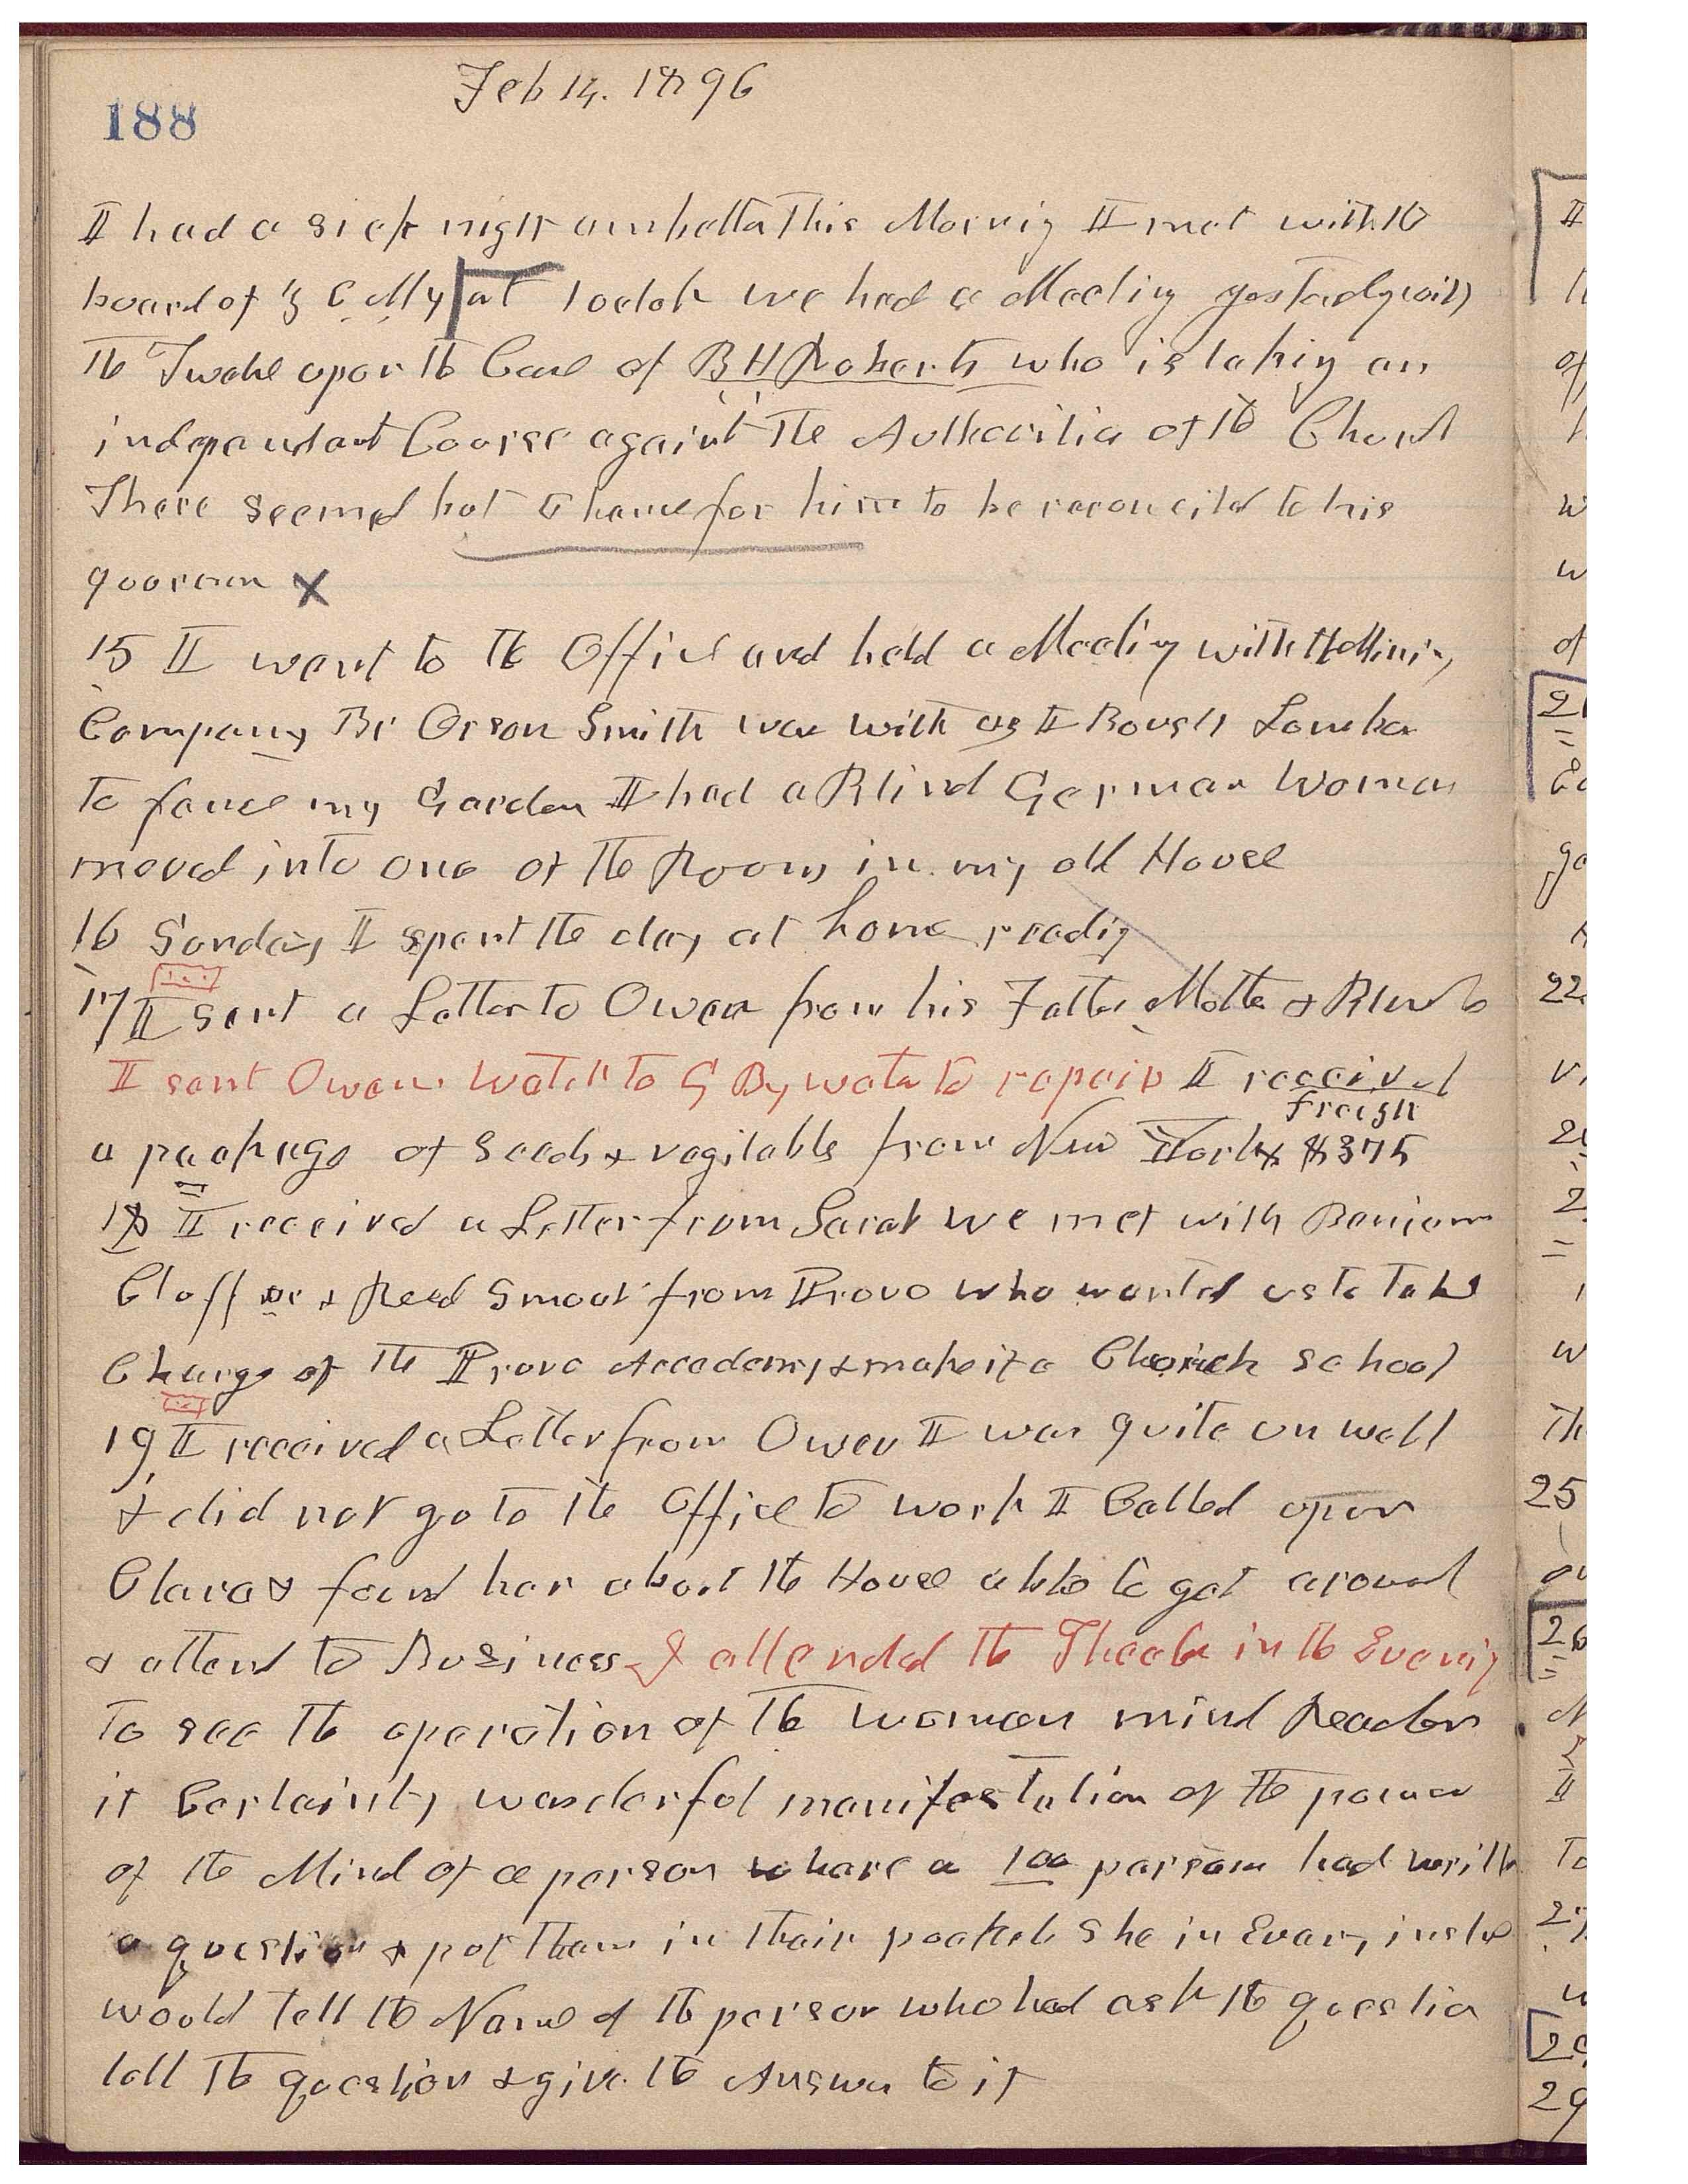 Feb 14. 1896
188
I had a sick night am better this Morning I met with the
board of Z C M I at 1 oclok we had a Meeting yesterday with
the Twelve upon the Case of B H Roberts who is taking an
independant Course against the Authoritia of the Church
There seemed but a chance for him to be reconciled to his
quorum X
15 I went to the Office and held a Meeting with the Mining
Company Br Orson Smith was with us I Bough Lumber
to fence my Garden I had a Blind German Woman
moved into one of the Rooms in my old House
16 Sunday I spent the day at home reading
17 I sent a Letter to Owen from his Father Mother &
I sent Owens Watch to G Bywater to repair I received
freigh
a package of seeds & vegitables from New York $375
18 I received a Letter from Sarah We met with Benjamin
Cluff Jr & Reed Smoot from Provo who wanted us to take
Charge of the Provo Accademy & make it a Church school
19 I received a Letter from Owen I was quite un well
& did not go to the Office to work I Called upon
Clara & found her about the House able to get around
& attend to Business I attended the Theater in the Evening
to see the operation of the woman mind Reader
it Certainly wonderful manifestation of the power
of the Mind of a person whare a 100 persons had writt
a question & put them in their pockets She in Evary inst
would tell the Name of the person who had ask the question
tell the question & give the Answer to it